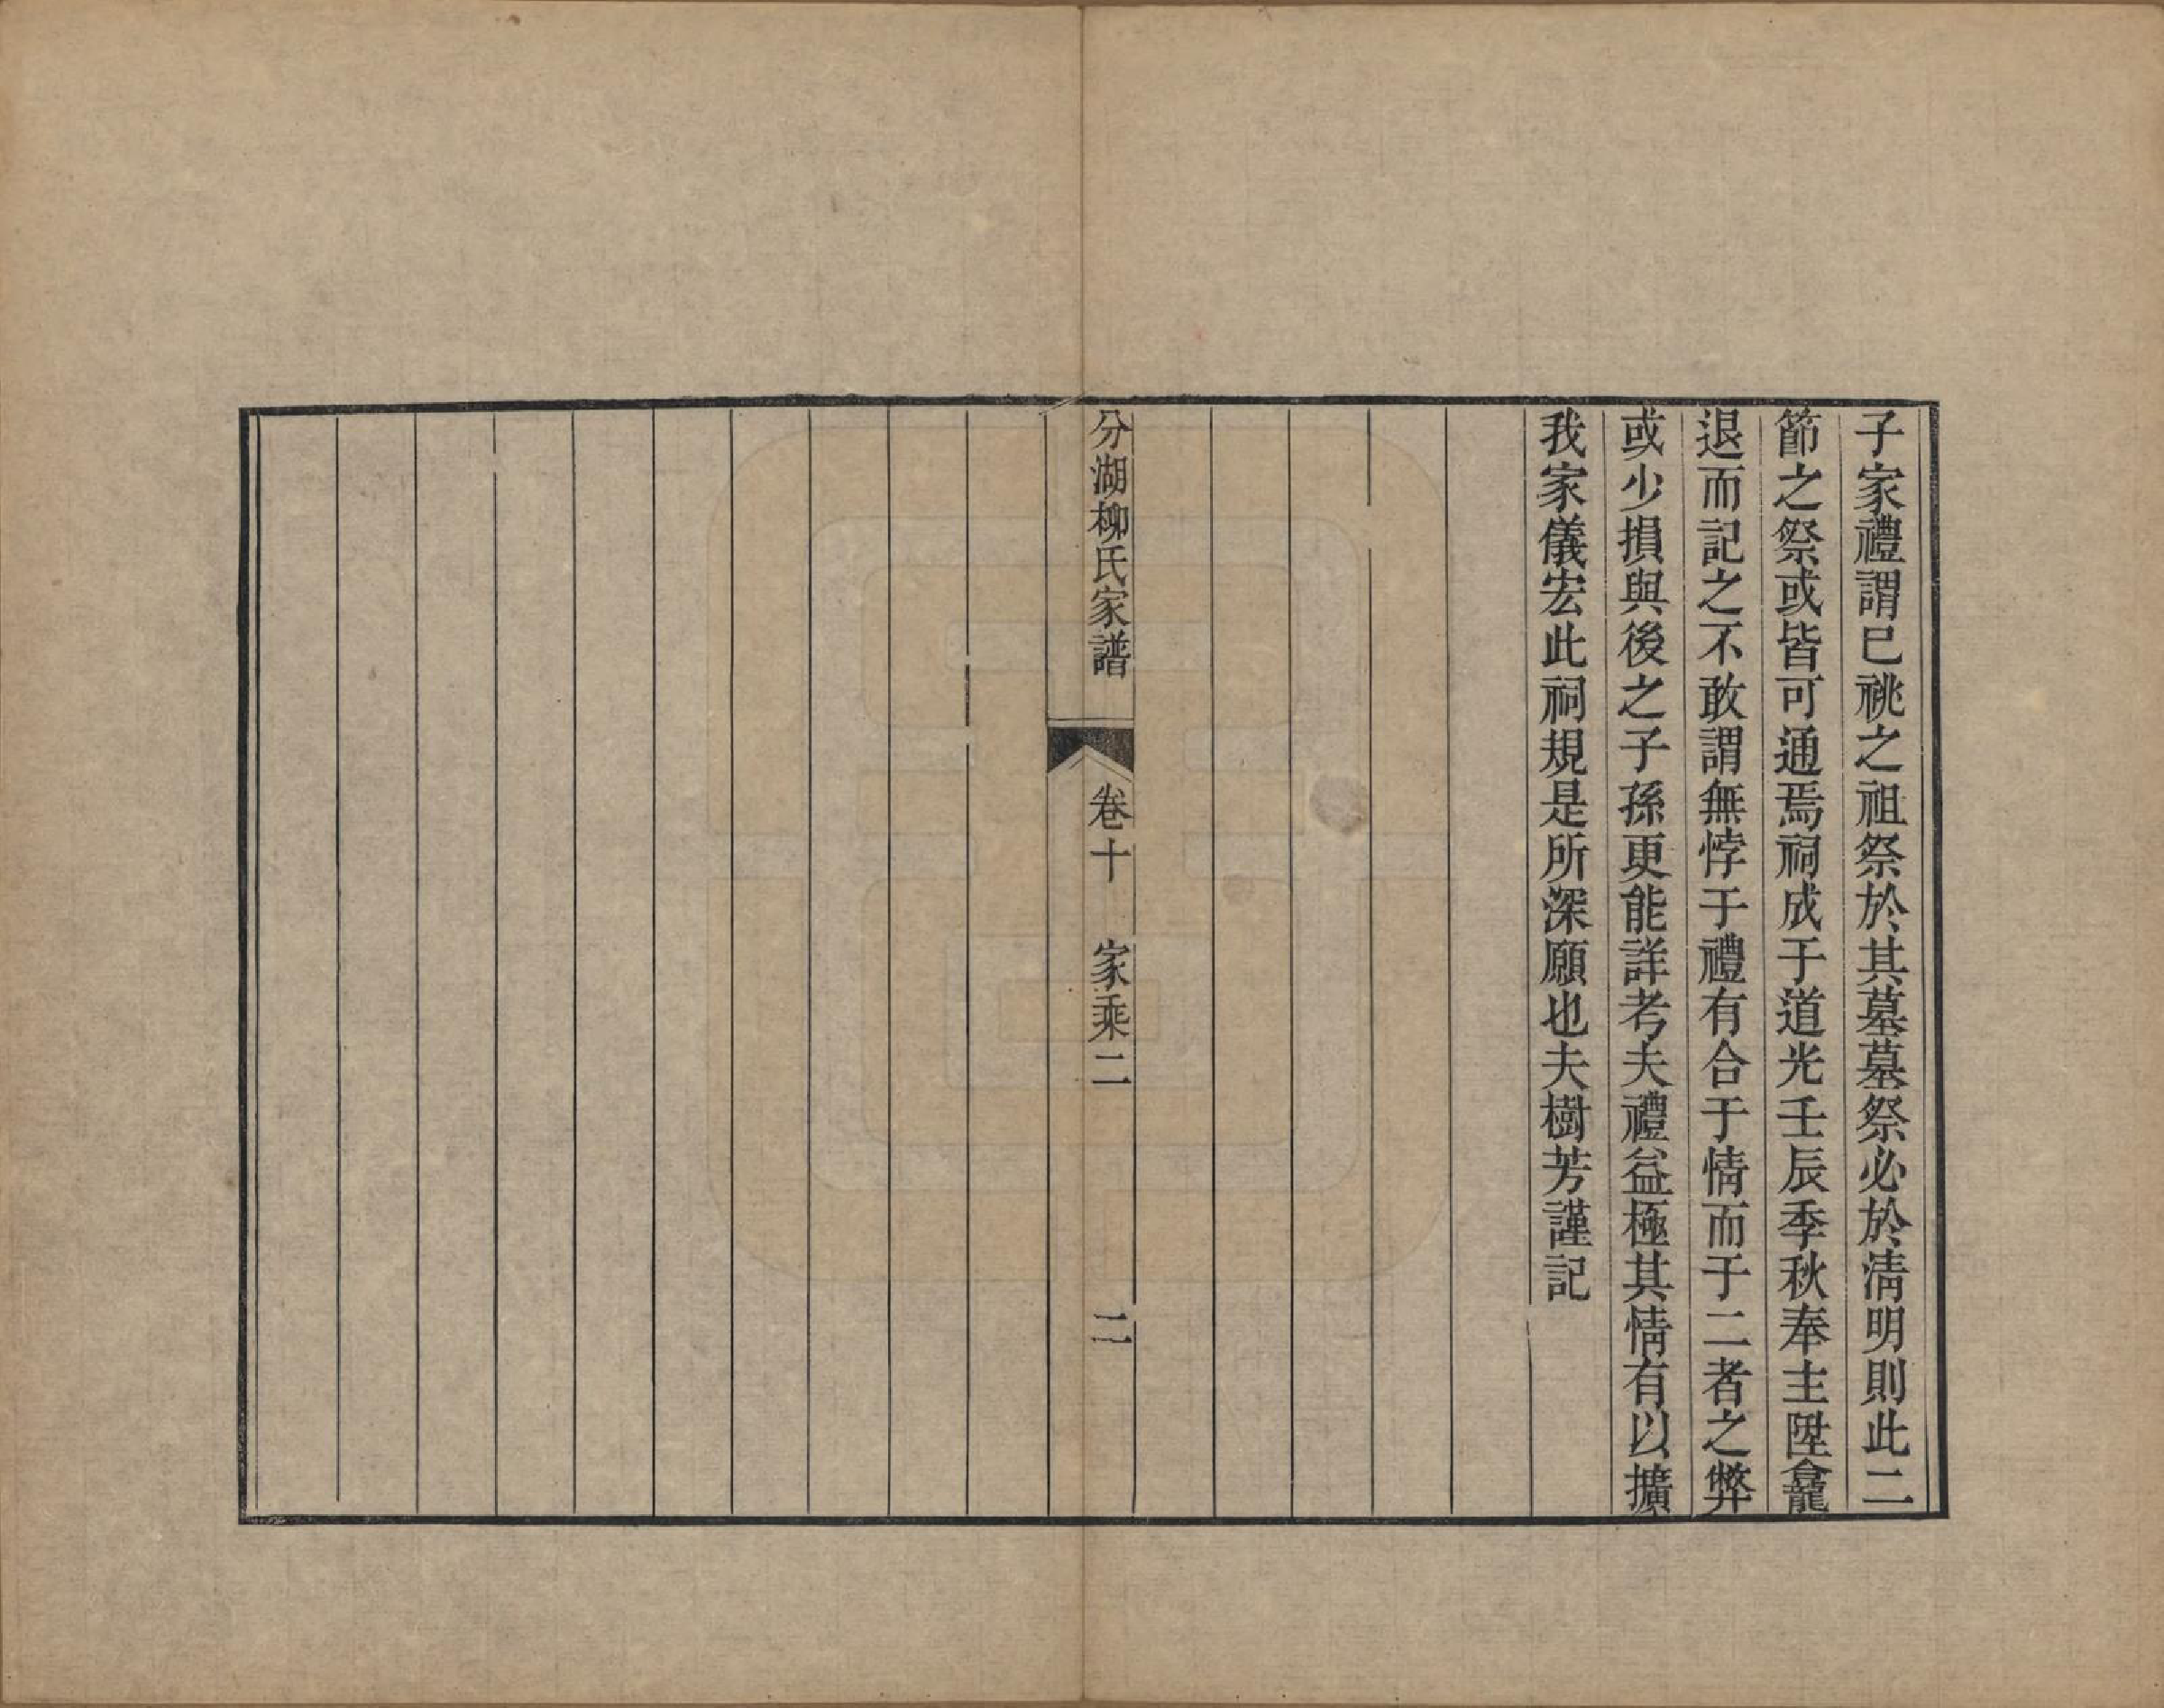 子家禮謂已祧之祖祭於其墓墓祭必於淸明則此二
節之祭或皆可通焉祠成于道光壬辰季秋奉主陞龕
退而記之不敢謂無悖于禮有合于情而于二者之弊
或少損與後之子孫更能詳考夫禮益極其情有以擴
我家儀宏此祠規是所深願也夫樹芳謹記
分湖柳氏家譜 卷十 家乘二 二